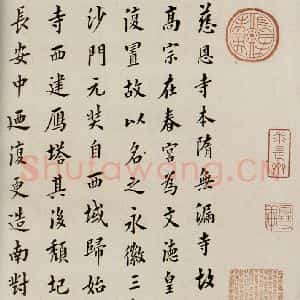 慈恩寺本隋無漏寺故
高宗在春宮為文德皇
復置故以名之永徽三
沙門元奘自西域歸始
寺西建雁塔其後頹圮
長安中迺復更造南對
Shufawang.CN